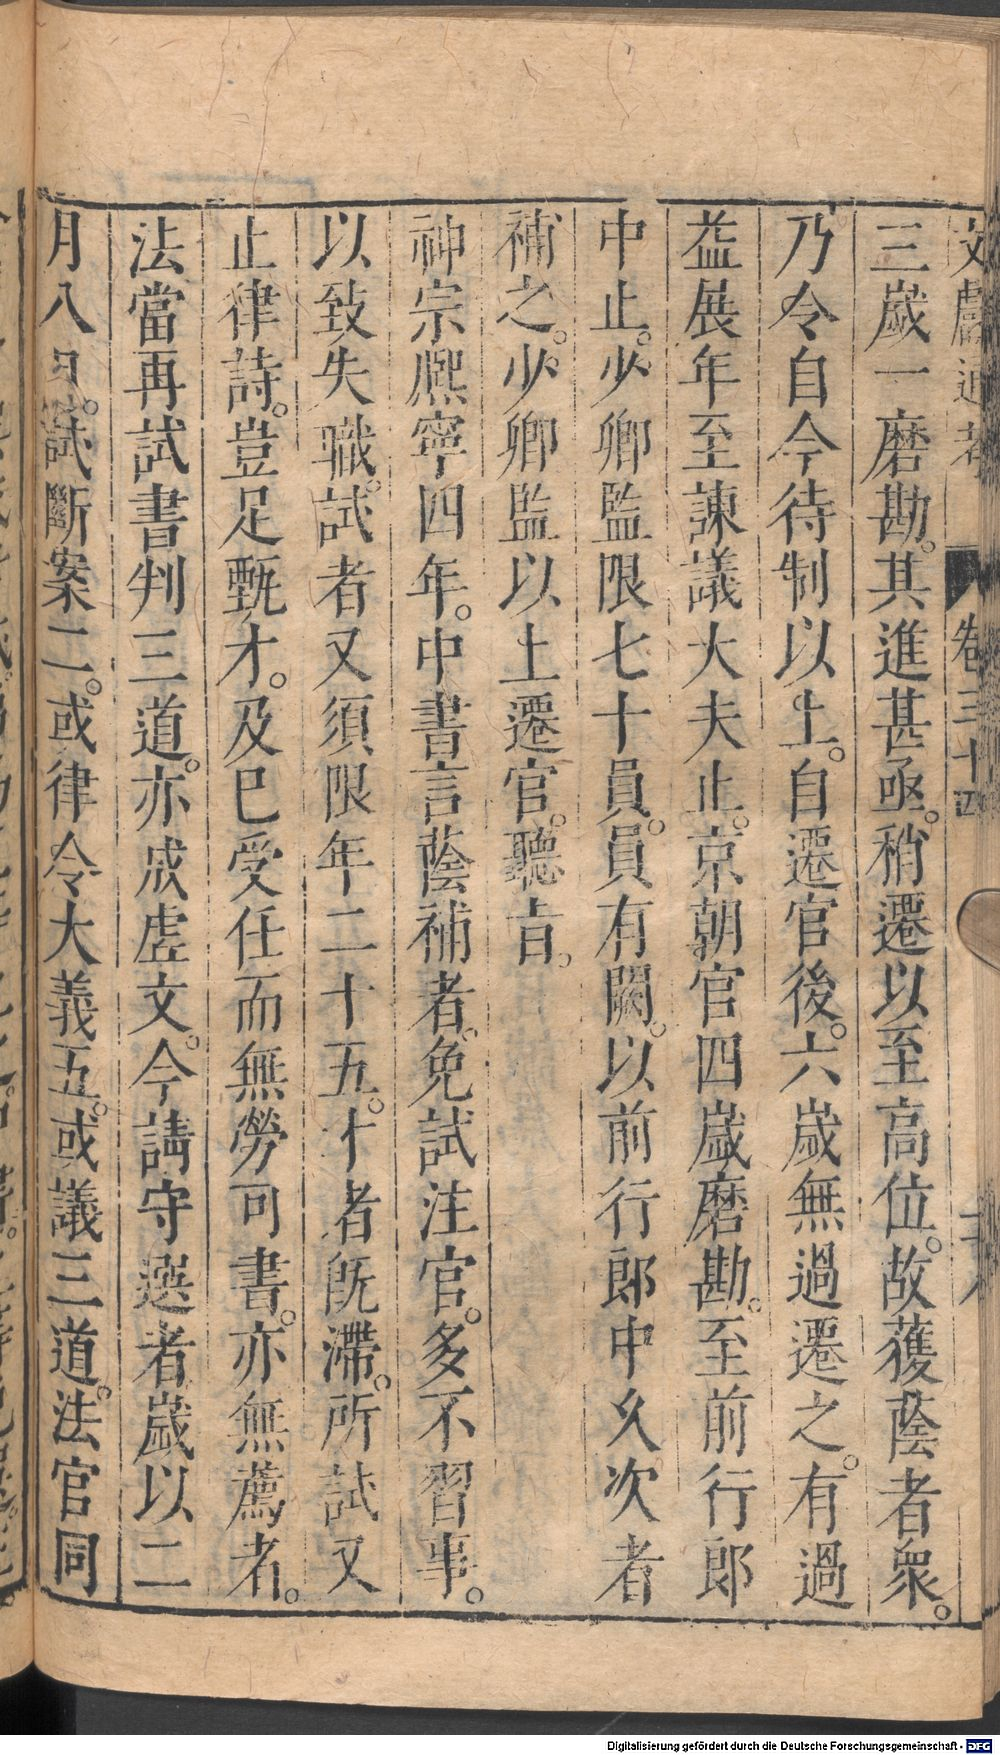 文獻通考 卷三十四
三歲一磨勘。其進甚亟。稍遷以至高位。故獲蔭者衆。
乃令自今待制以上。自遷官後。六歲無過遷之。有過
益展年至諫議大夫止。京朝官四歲磨勘。至前行郎
中止。少卿監限七十員。員有闕。以前行郎中久次者
補之。少卿監以上遷官。聽旨。
神宗熙寧四年。中書言蔭補者。免試注官。多不習事。
以致失職。試者又須限年二十五。才者旣滯。所試又
止律詩。豈足甄才。及已受任而無勞可書。亦無薦者。
法當再試書判三道。亦成虛文。今請守選者歲以二
月八月試斷案二。或律令大義五。或議三道。法官同
Digitalisierung gefördert durch die Deutsche Forschungsgemeinschaft - DFG